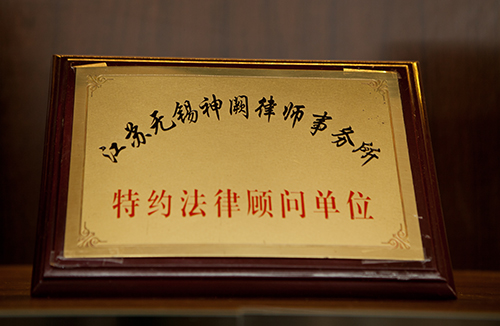 江苏无锡神阙律师事务所
特约法律顾问单位